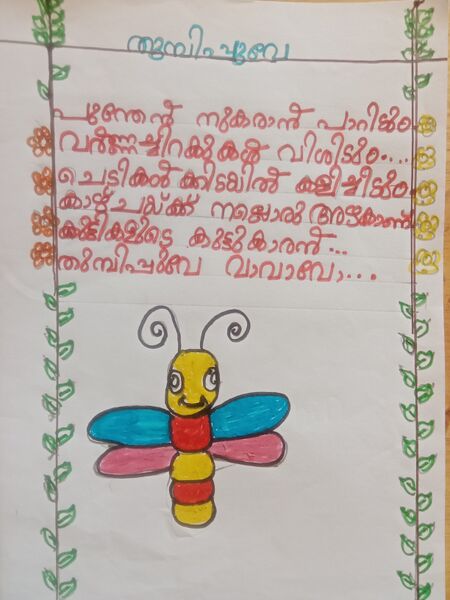 തുമ്പിപ്പൂവേ
പൂന്തേൻ നുകരാൻ പാറിടും
വർണ്ണച്ചിറകുകൾ വിശിടും....
ചെടികൾക്കിടയിൽ കളിച്ചീടും
കാഴ്ചയ്ക്ക് നല്ലൊരു അഴകാണ്
കുട്ടികളുടെ കൂട്ടുകാരൻ...
തുമ്പിപ്പൂവേ വാവാവോ...